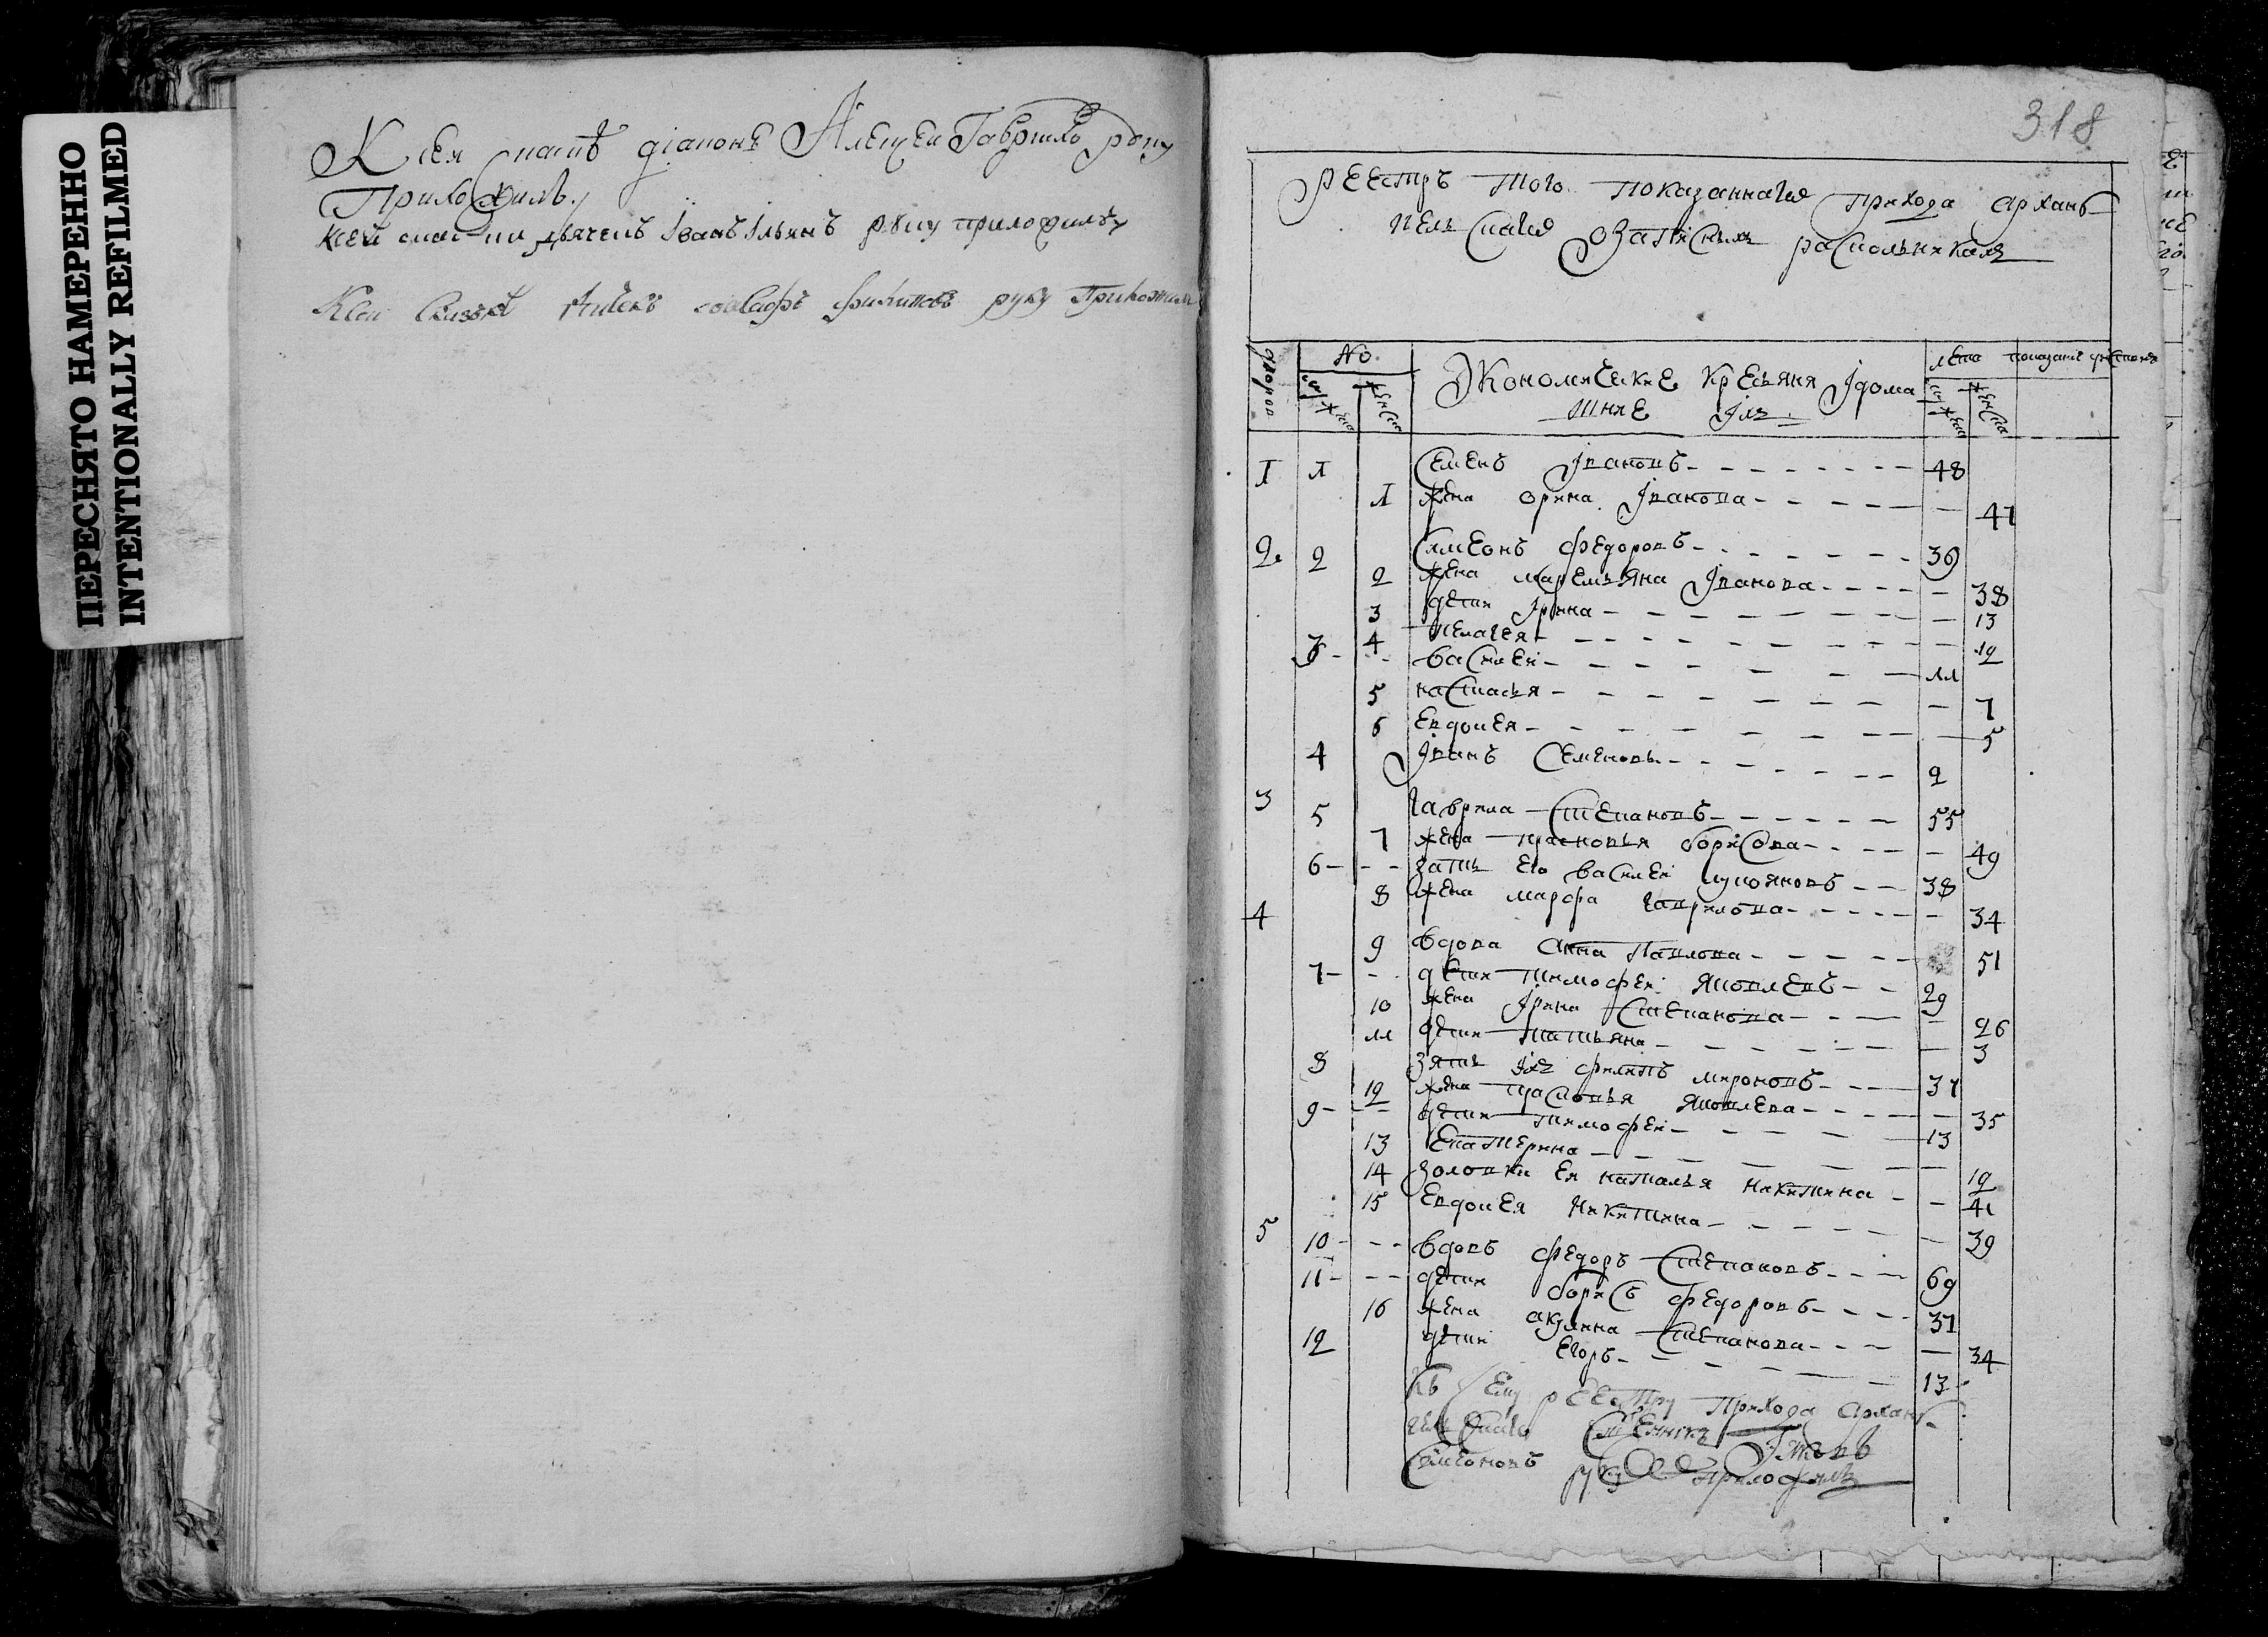 ПЕРЕСНЯТО НАМЕРЕННО
INTENTIONALLY REFILMED
К сея діаконъ Алеѯѣи Гаврило руку
Приложилъ
ксей дьячекъ Іванъ Ільинъ руку приложилъ
Ксеи руку Приложилъ
318
Реестръ того показаннаго прихода Архан
гелскаго о записныхъ раскольникахъ
дворов
No
мужеска
женска
Экономические кресьяня и дома
шние их
лета
мужеска
женска
1 1 Семенъ Іванов 48
1 жена орина Іванова 41
2 2 Симеонъ федоровъ 39
2 жена маремьяна Іванова 38
3 дети Ірина 13
4 пелагея 12
3 василеи 11
5 настасья 7
6 Евдокея 5
4 Іванъ Семеновъ 2
3 5 гаврила Степановъ 55
7 жена прасковья борисова 49
6 зять его василеи лукояновъ 38
8 жена марфа гаврилова 34
4
9 вдова Анна Павлова 51
7 дети тимофеи яковлевъ 29
10 жена Ірина Степанова 26
11 дети татьяна 3
8 зять их филипъ мироновъ 37
12 жена прасковья яковлева 35
9 дети тимофеи 13
13 Екатерина 12
14 золовки ея наталья никитина 41
15 Евдокея никитина 39
5 10 вдовъ федоръ Степановъ 69
11 дети борисъ федоровъ 37
16 жена акулина Степанова 34
12 дети Егоръ 13
Къ сему реестру прихода Архан
гелскаго Сщенникъ Іяковъ
Симеоновъ руку приложилъ